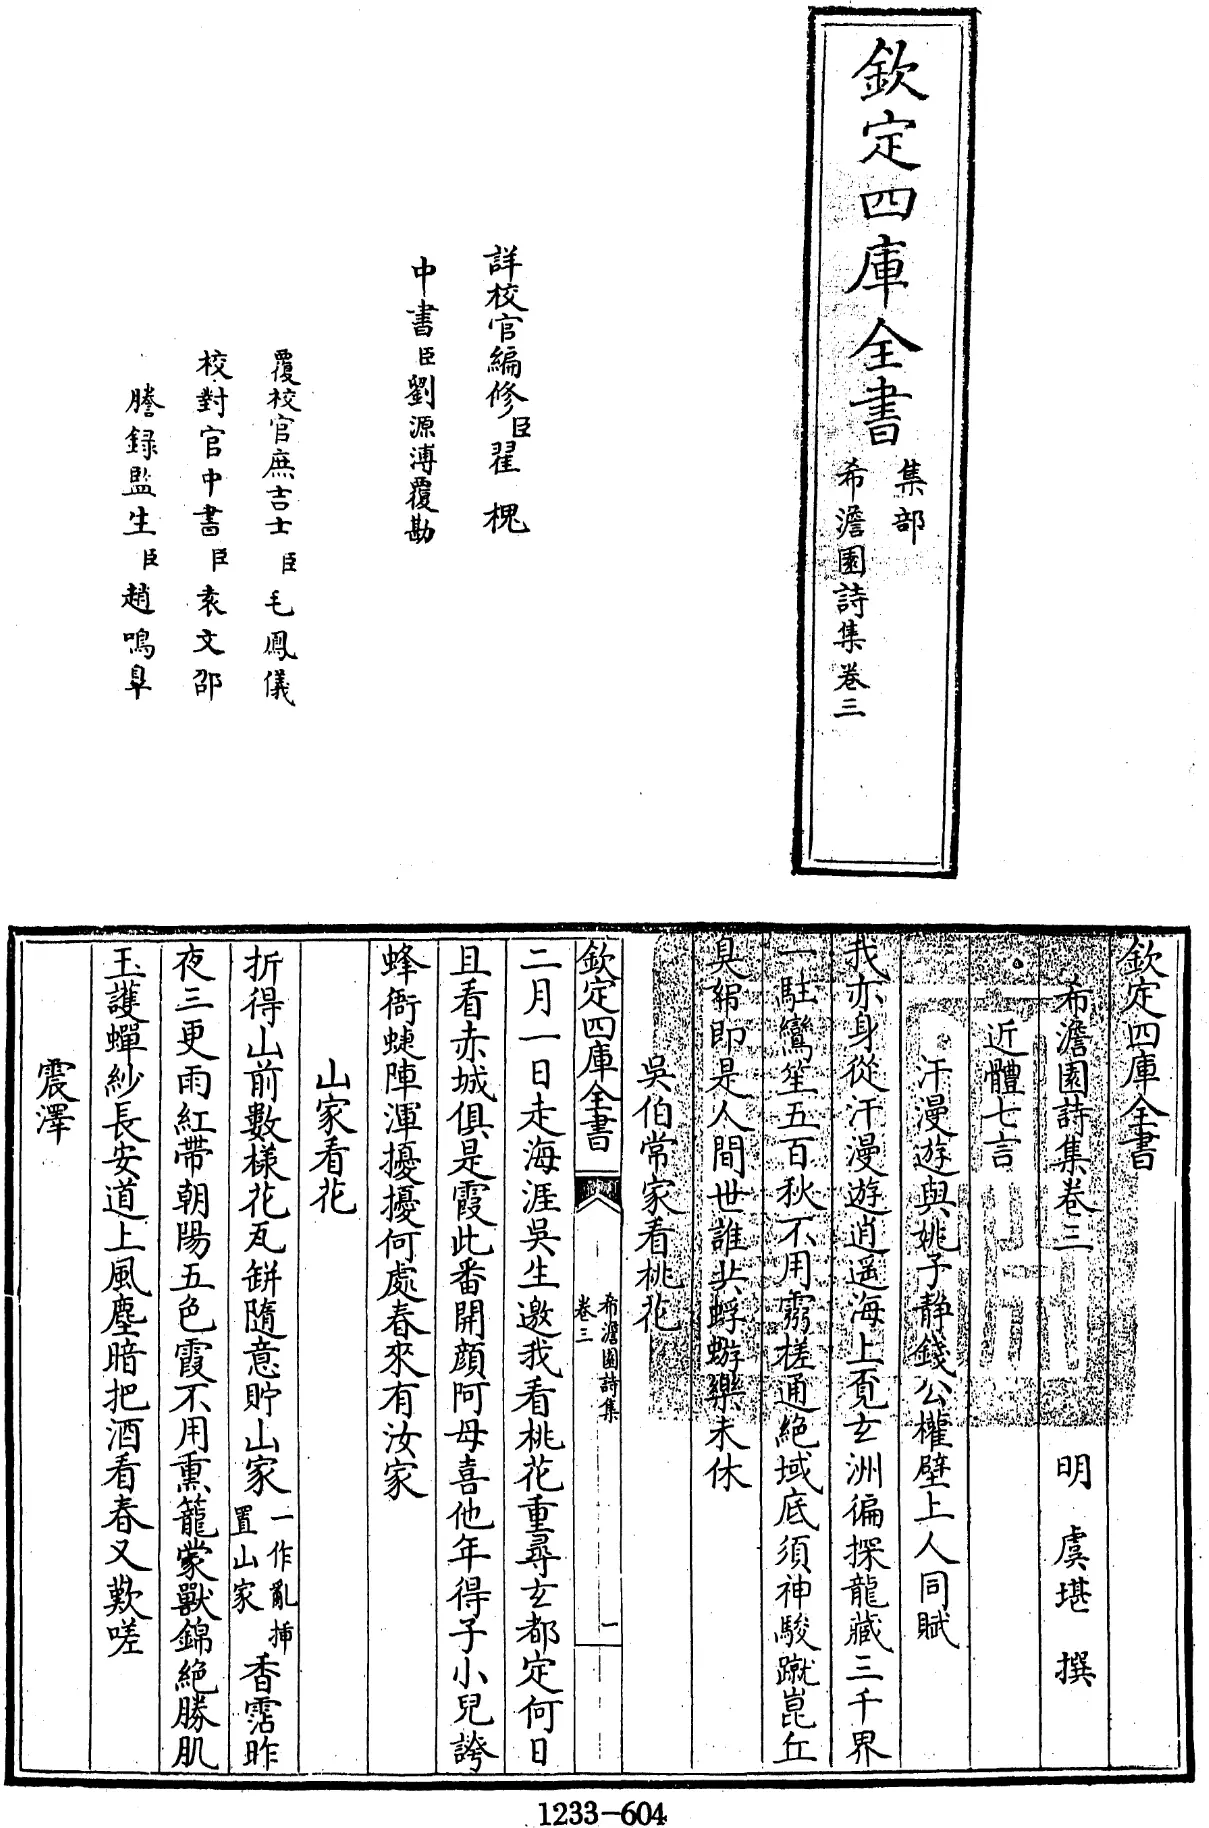 欽定四庫全書
集部
希澹園詩集卷三
詳校官編修臣翟槐
中書臣劉源溥覆勘
覆校官庶吉士臣毛鳳儀
校對官中書臣袁文邵
謄録監生臣趙鳴臯
欽定四庫全書
希澹園詩集卷三
明 虞堪 撰
近體七言
汗漫遊與姚子靜錢公權壁上人同賦
我亦身從汗漫遊逍遥海上覔玄洲徧探龍藏三千界
一駐鸞笙五百秋不用霛槎通絶域底須神駿蹴崑丘
臭帤即是人間世誰共蜉蝣樂未休
吳伯常家看桃花
欽定四庫全書
希澹園詩集
卷三
一
二月一日走海涯吳生邀我看桃花重尋玄都定何日
且看赤城俱是霞此番開顔阿母喜他年得子小兒誇
蜂衙蜨陣渾擾擾何處春來有汝家
山家看花
折得山前數樣花瓦缾隨意貯山家一作亂挿置山家香霑昨
夜三更雨紅帶朝陽五色霞不用熏籠蒙獸錦絶勝肌
玉護蟬紗長安道上風塵暗把酒看春又歎嗟
震澤
1233-604